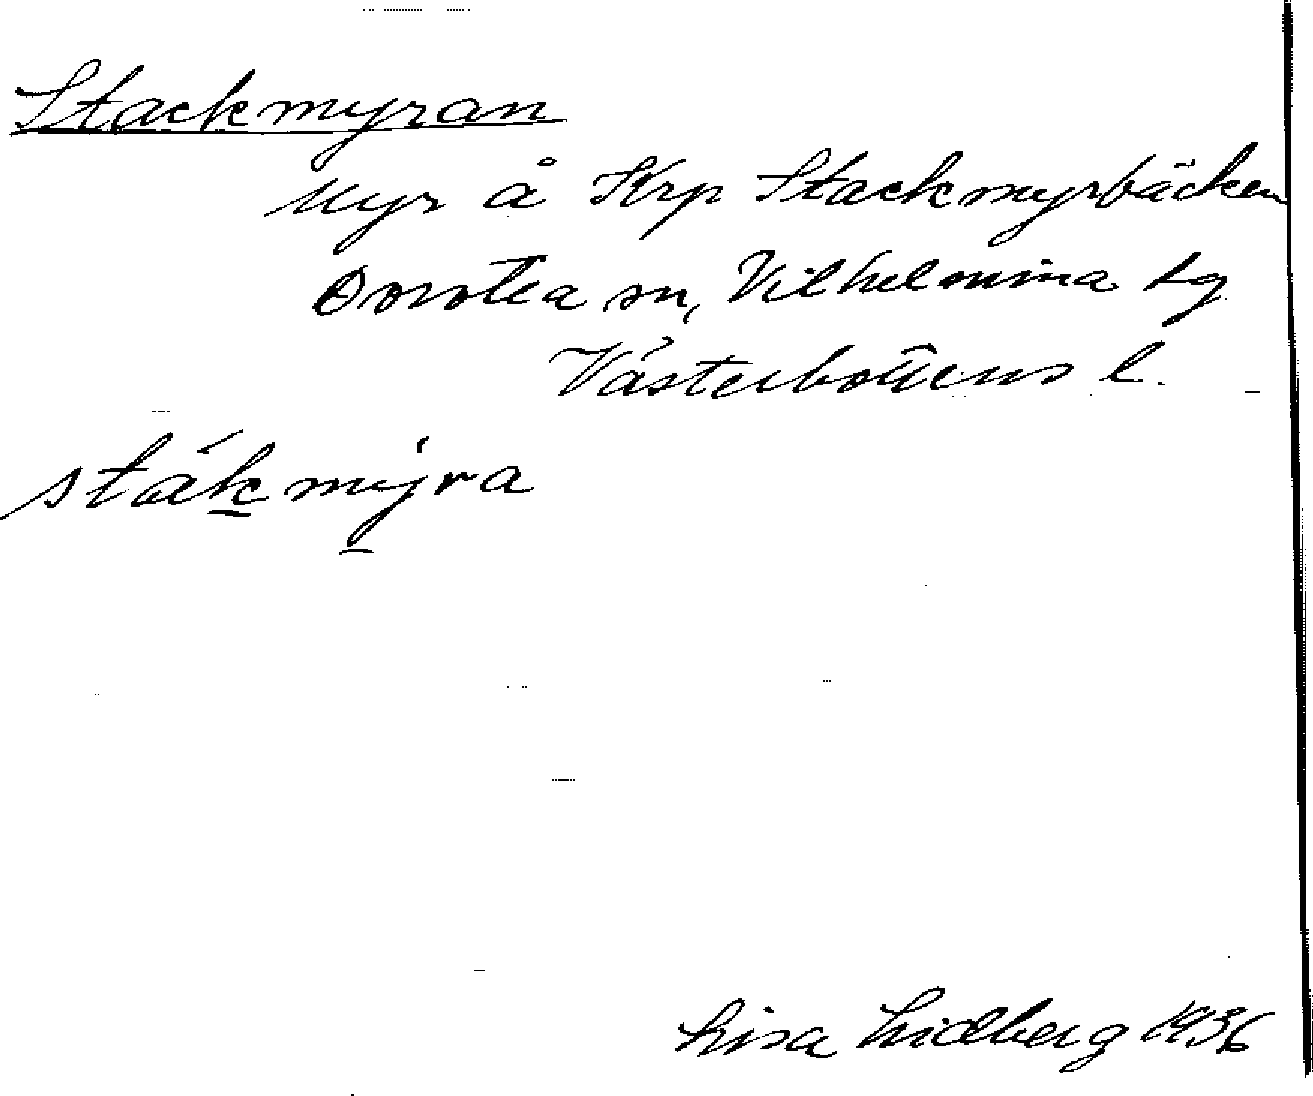 Stackmyran
Myr å Krp Stackmyrbäcken
Dorotea sn, Vilhelmina tg
Västerbottens l.
sták̠mýra
Lisa Lidberg 1936